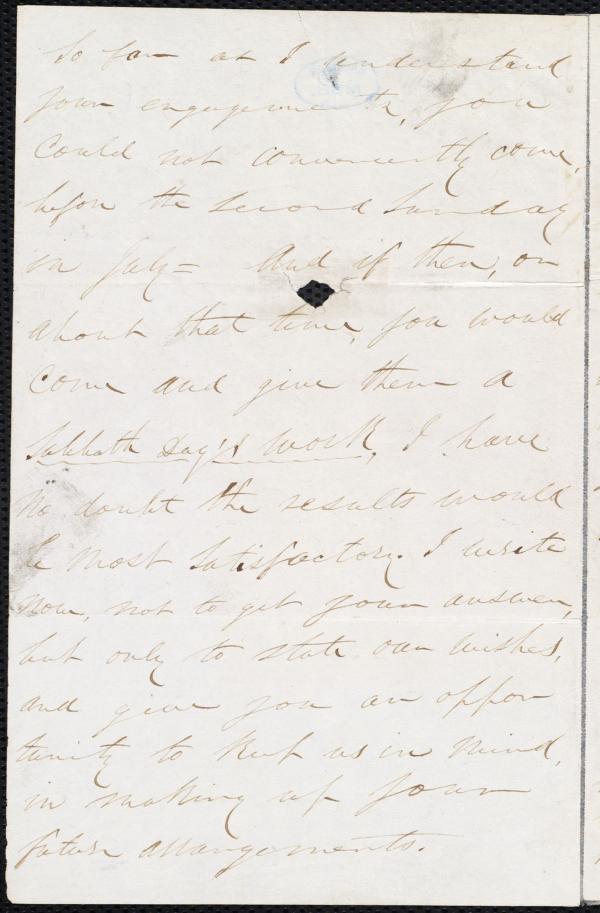 So far as I understand
your engagements, you
could not conveniently come,
before the second Sunday
in July = And if then, or
about that time, you would
come and give them a
Sabbath Day's work, I have
no doubt the results would
be most satisfactory. I write
now, not to get your answer,
but only to state our wishes,
and give you an oppor
tunity to keep us in mind,
in making up your
future arrangements.